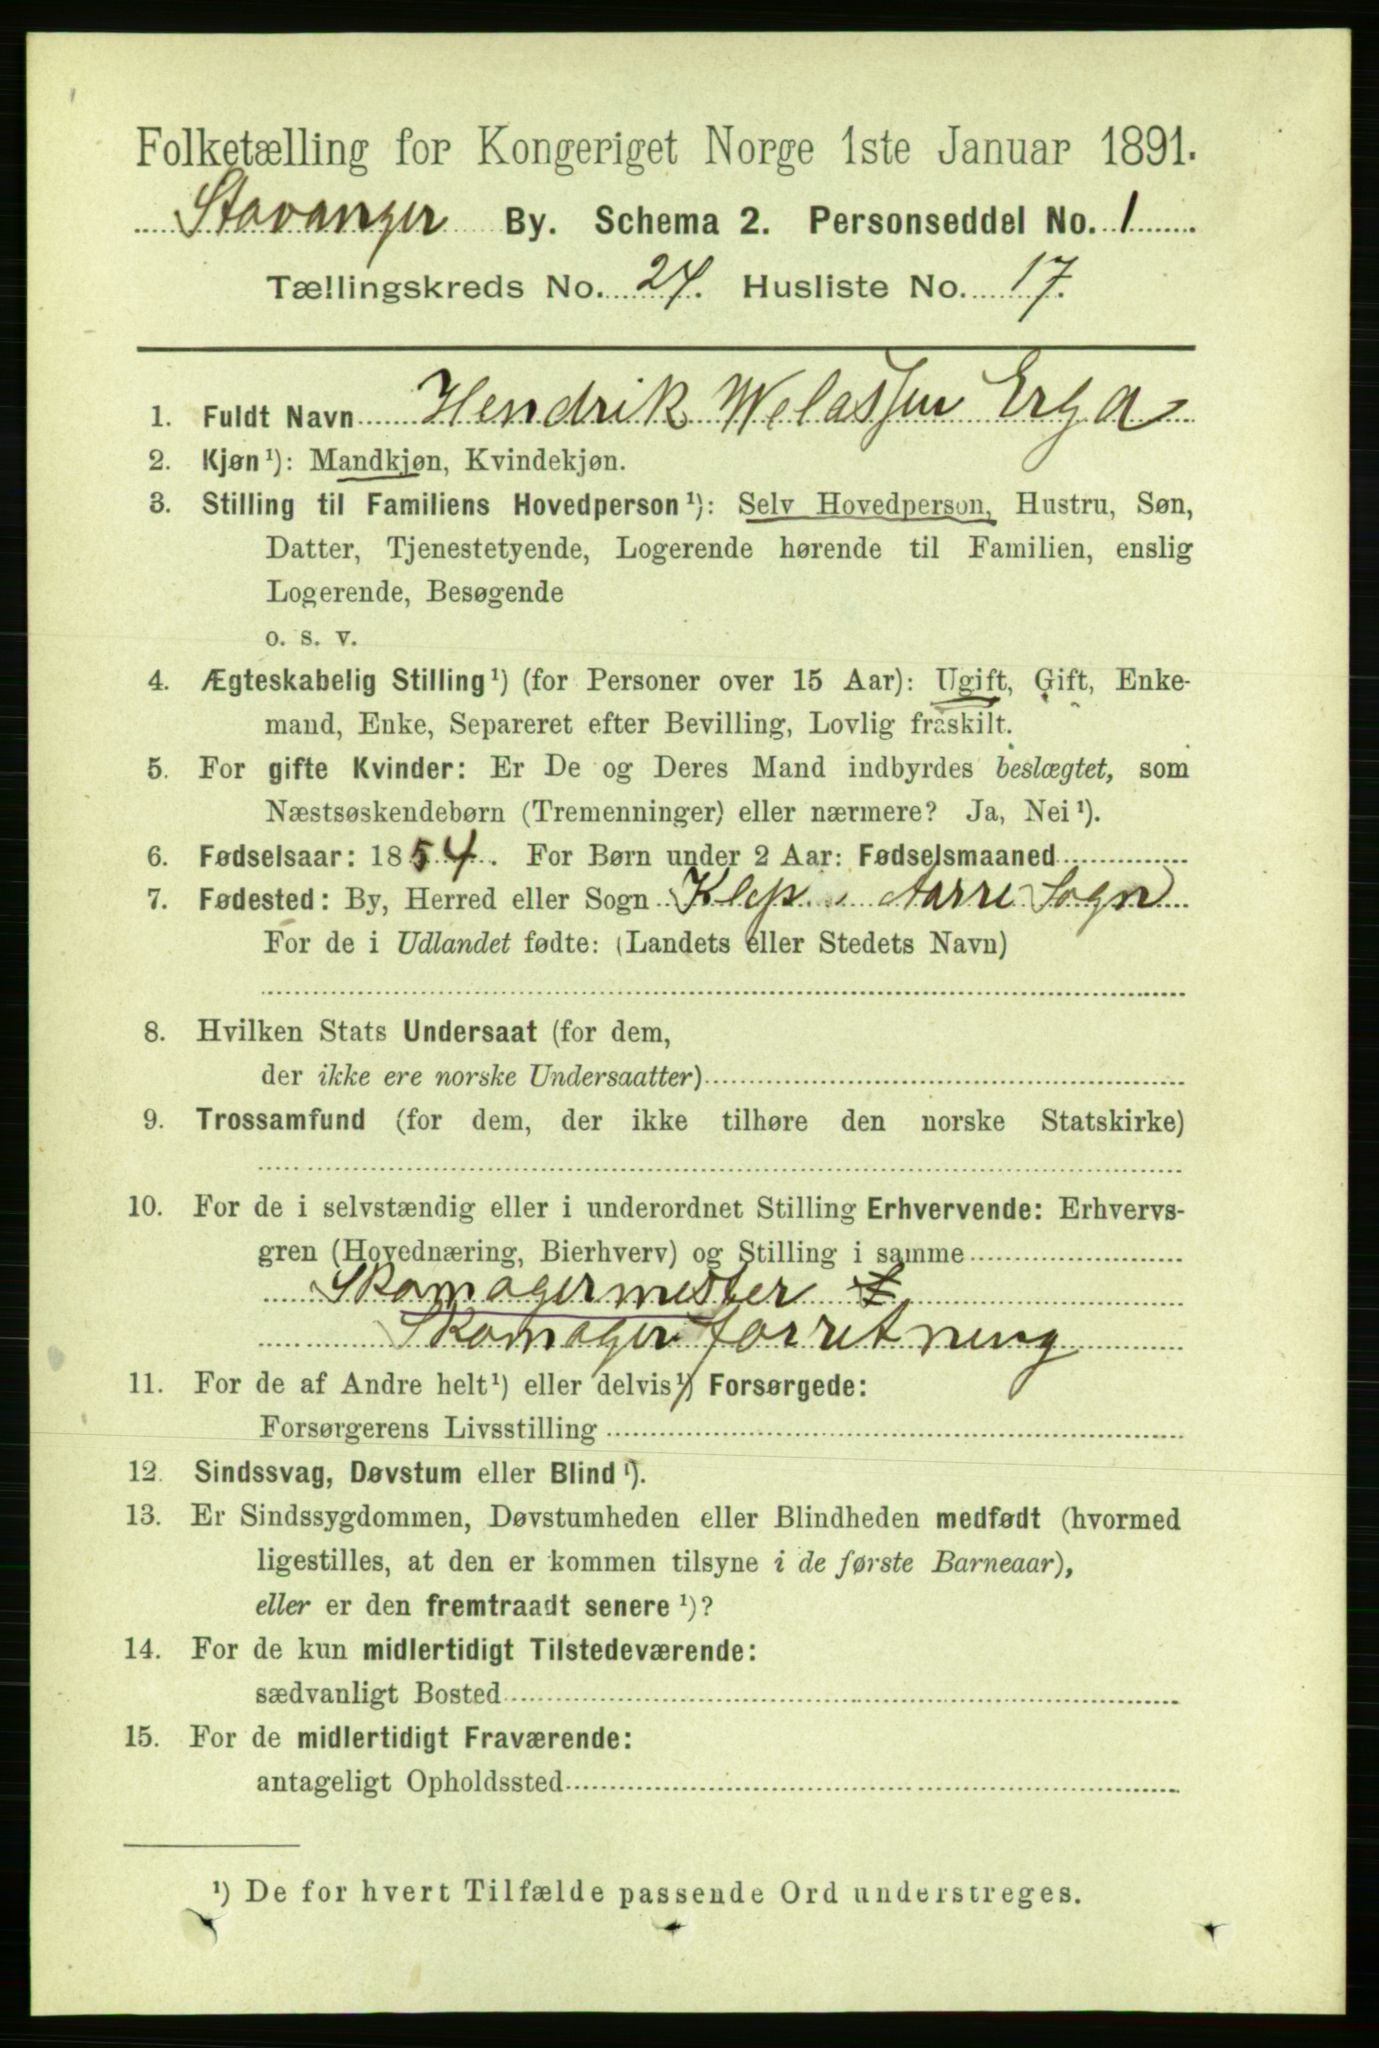 Folketælling for Kongeriget Norge 1ste Januar 1891.
Stavanger By. Schema 2. Personseddel No. 1
Tællingskreds No. 24. Husliste No. 17.
1. Fuldt Navn Hendrik Welassen Erga
2. Kjøn¹): Mandkjøn, Kvindekjøn.
3. Stilling til Familiens Hovedperson¹): Selv Hovedperson, Hustru, Søn,
Datter, Tjenestetyende, Logerende hørende til Familien, enslig
Logerende, Besøgende
o. s. v.
4. Ægteskabelig Stilling¹) (for Personer over 15 Aar): Ugift, Gift, Enke-
mand, Enke, Separeret efter Bevilling, Lovlig fraskilt.
5. For gifte Kvinder: Er De og Deres Mand indbyrdes beslægtet, som
Næstsøskendebørn (Tremenninger) eller nærmere? Ja, Nei¹).
6. Fødselsaar: 1854. For Børn under 2 Aar: Fødselsmaaned
7. Fødested: By, Herred eller Sogn Klep Aarre Sogn
For de i Udlandet fødte: (Landets eller Stedets Navn)
8. Hvilken Stats Undersaat (for dem,
der ikke ere norske Undersaatter)
9. Trossamfund (for dem, der ikke tilhøre den norske Statskirke)
10. For de i selvstændig eller i underordnet Stilling Erhvervende: Erhvervs-
gren (Hovednæring, Bierhverv) og Stilling i samme
Skomagermester
Skomagerforretning
11. For de af Andre helt¹) eller delvis¹) Forsørgede:
Forsørgerens Livsstilling
12. Sindssvag, Døvstum eller Blind¹).
13. Er Sindssygdommen, Døvstumheden eller Blindheden medfødt (hvormed
ligestilles, at den er kommen tilsyne i de første Barneaar),
eller er den fremtraadt senere¹)?
14. For de kun midlertidigt Tilstedeværende:
sædvanligt Bosted
15. For de midlertidigt Fraværende:
antageligt Opholdssted
¹) De for hvert Tilfælde passende Ord understreges.